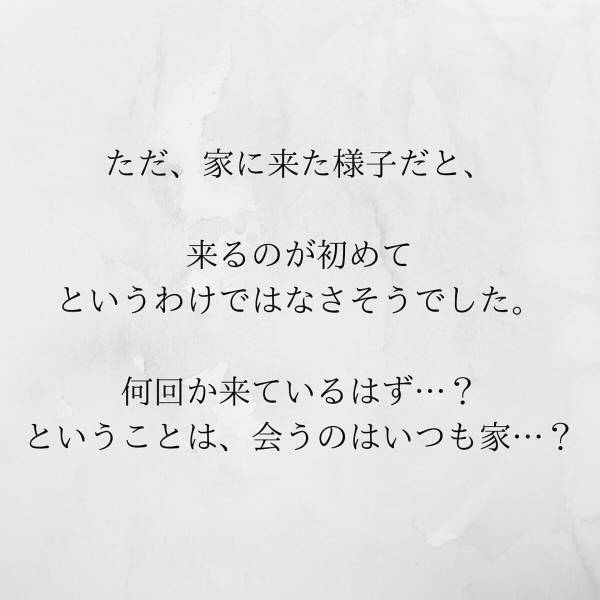 ただ、家に来た様子だと、
来るのが初めて
というわけではなさそうでした。
何回か来ているはず…？
ということは、会うのはいつも家…？